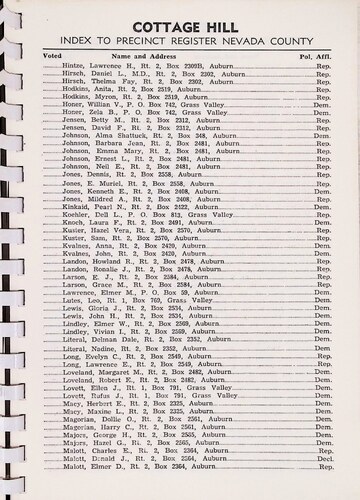 COTTAGE HILL
INDEX TO PRECINCT REGISTER NEVADA COUNTY
Voted Name and Address Pol. Affl.
Hintze, Lawrence H., Rt. 2, Box 2309B, Auburn Rep.
Hirsch, Daniel L., M.D., Rt. 2, Box 2302, Auburn Rep.
Hirsch, Thelma Fay, Rt. 2, Box 2302, Auburn Rep.
Hodkins, Anita, Rt. 2, Box 2519, Auburn Rep.
Hodkins, Myron, Rt. 2, Box 2519, Auburn Rep.
Honer, Willian V., P. O. Box 742, Grass Valley Dem.
Honer, Zela B., P. O. Box 742, Grass Valley Dem.
Jensen, Betty M., Rt. 2, Box 2312, Auburn Rep.
Jensen, David F., Rt. 2, Box 2312, Auburn Rep.
Johnson, Alma Shattuck, Rt. 2, Box 348, Auburn Dem.
Johnson, Barbara Jean, Rt. 2, Box 2481, Auburn Rep.
Johnson, Emma Mary, Rt. 2, Box 2481, Auburn Rep.
Johnson, Ernest L., Rt. 2, Box 2481, Auburn Rep.
Johnson, Neil E., Rt. 2, Box 2481, Auburn Rep.
Jones, Dennis, Rt. 2, Box 2558, Auburn Rep.
Jones, E. Muriel, Rt. 2, Box 2558, Auburn Rep.
Jones, Kenneth E., Rt. 2, Box 2408, Auburn Dem.
Jones, Mildred A., Rt. 2, Box 2408, Auburn Rep.
Kinkaid, Pearl N., Rt. 2, Box 2422, Auburn Dem.
Koehler, Dell L., P. O. Box 813, Grass Valley Rep.
Knoch, Laura F., Rt. 2, Box 2491, Auburn Dem.
Kuster, Hazel Vera, Rt. 2, Box 2570, Auburn Rep.
Kuster, Sam, Rt. 2, Box 2570, Auburn Rep.
Kvalnes, Anna, Rt. 2, Box 2420, Auburn Dem.
Kvalnes, John, Rt. 2, Box 2420, Auburn Dem.
Landon, Howland R., Rt. 2, Box 2478, Auburn Rep.
Landon, Ronalie J., Rt. 2, Box 2478, Auburn Rep.
Larson, E. J., Rt. 2, Box 2584, Auburn Rep.
Larson, Grace M., Rt. 2, Box 2584, Auburn Rep.
Lawrence, Elmer M., P.O. Box 59, Auburn Dem.
Lates, Leo, Rt. 1, Box 769, Grass Valley Dem.
Lewis, Gloria J., Rt. 2, Box 2534, Auburn Dem.
Lewis, John H., Rt. 2, Box 2534, Auburn Dem.
Lindley, Elmer W., Rt. 2, Box 2569, Auburn Dem.
Lindley, Vivian I., Rt. 2, Box 2569, Auburn Dem.
Literal, Delman Dale, Rt. 2, Box 2352, Auburn Dem.
Literal, Nadine, Rt. 2, Box 2352, Auburn Dem.
Long, Evelyn C., Rt. 2, Box 2549, Auburn Rep.
Long, Lawrence E., Rt. 2, Box 2549, Auburn Rep.
Loveland, Margaret M., Rt. 2, Box 2482, Auburn Dem.
Loveland, Robert E., Rt. 2, Box 2482, Auburn Dem.
Lovett, Ellen J., Rt. 1, Box 791, Grass Valley Dem.
Lovett, Rufus J., Rt. 1, Box 791, Grass Valley Dem.
Macy, Herbert E., Rt. 2, Box 2325, Auburn Dem.
Macy, Maxine L., Rt. 2, Box 2325, Auburn Dem.
Magorian, Dellie O., Rt. 2, Box 2561, Auburn Dem.
Magorian, Harry C., Rt. 2, Box 2561, Auburn Dem.
Majors, George H., Rt. 2, Box 2565, Auburn Dem.
Majors, Hazel G., Rt. 2, Box 2565, Auburn Dem.
Malott, Charles E., Rt. 2, Box 2364, Auburn Rep.
Malott, Donald J., Rt. 2, Box 2364, Auburn Decl.
Malott, Elmer D., Rt. 2, Box 2364, Auburn Rep.